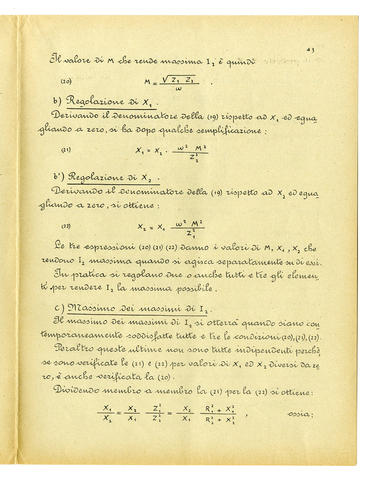 23
Il valore di M che rende massima I₂ è quindi
(20) M = √(Z₁ Z₂) / ω
b) Regolazione di X₁.
Derivando il denominatore della (19) rispetto ad X₁ ed egua
gliando a zero, si ha dopo qualche semplificazione:
(21) X₁ = X₂ · ω² M² / Z₂²
b') Regolazione di X₂.
Derivando il denominatore della (19) rispetto ad X₂ ed egua
gliando a zero, si ottiene:
(22) X₂ = X₁ ω² M² / Z₁²
Le tre espressioni (20) (21) (22) danno i valori di M, X₁, X₂ che
rendono I₂ massima quando si agisca separatamente su di essi.
In pratica si regolano due o anche tutti e tre gli elemen
ti per rendere I₂ la massima possibile.
c) Massimo dei massimi di I₂.
Il massimo dei massimi di I₂ si otterrà quando siano con
temporaneamente soddisfatte tutte e tre le condizioni (20), (21), (22).
Peraltro queste ultime non sono tutte indipendenti perchè,
se sono verificate le (21) e (22) per valori di X₁ ed X₂ diversi da ze
ro, è anche verificata la (20).
Dividendo membro a membro la (21) per la (22) si ottiene:
X₁/X₂ = X₂/X₁ · Z₁²/Z₂² = X₂/X₁ · (R₁² + X₁²)/(R₂² + X₂²) , ossia: